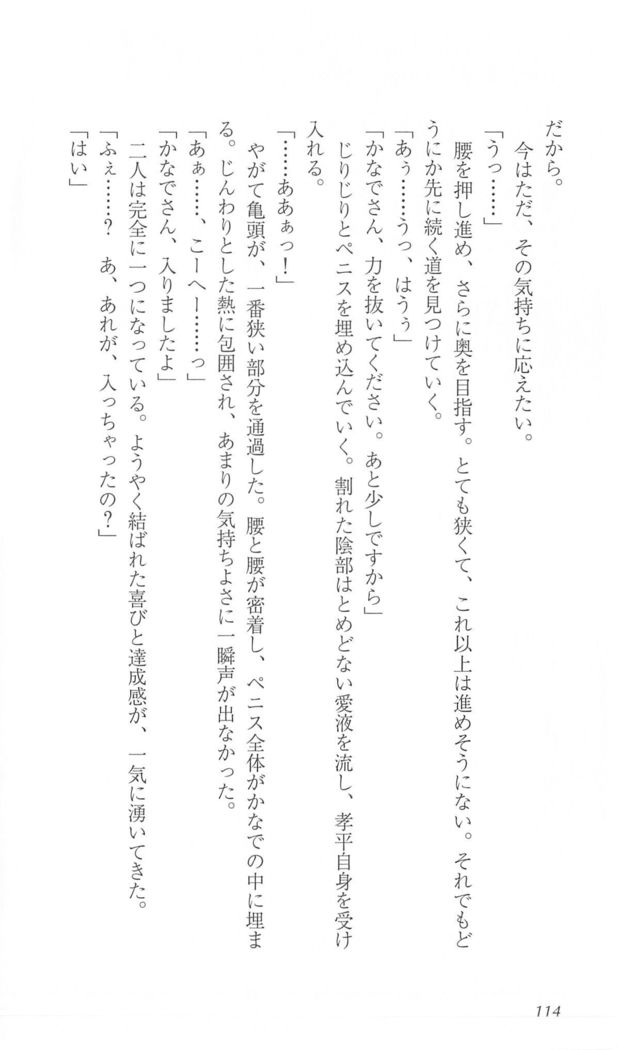 だから。
今はただ、その気持ちに応えたい。
「うっ……」
腰を押し進め、さらに奥を目指す。とても狭くて、これ以上は進めそうにない。それでもど
うにか先に続く道を見つけていく。
「あぅ……うっ、はうぅ」
「かなでさん、力を抜いてください。あと少しですから」
じりじりとペニスを埋め込んでいく。割れた陰部はとめどない愛液を流し、孝平自身を受け
入れる。
「……ああぁっ!」
やがて亀頭が、一番狭い部分を通過した。腰と腰が密着し、ペニス全体がかなでの中に埋ま
る。じんわりとした熱に包囲され、あまりの気持ちよさに一瞬声が出なかった。
「あぁ……、こーへー……っ」
「かなでさん、入りましたよ」
二人は完全に一つになっている。ようやく結ばれた喜びと達成感が、一気に湧いてきた。
「ふぇ……? あ、あれが、入っちゃったの?」
「はい」
114